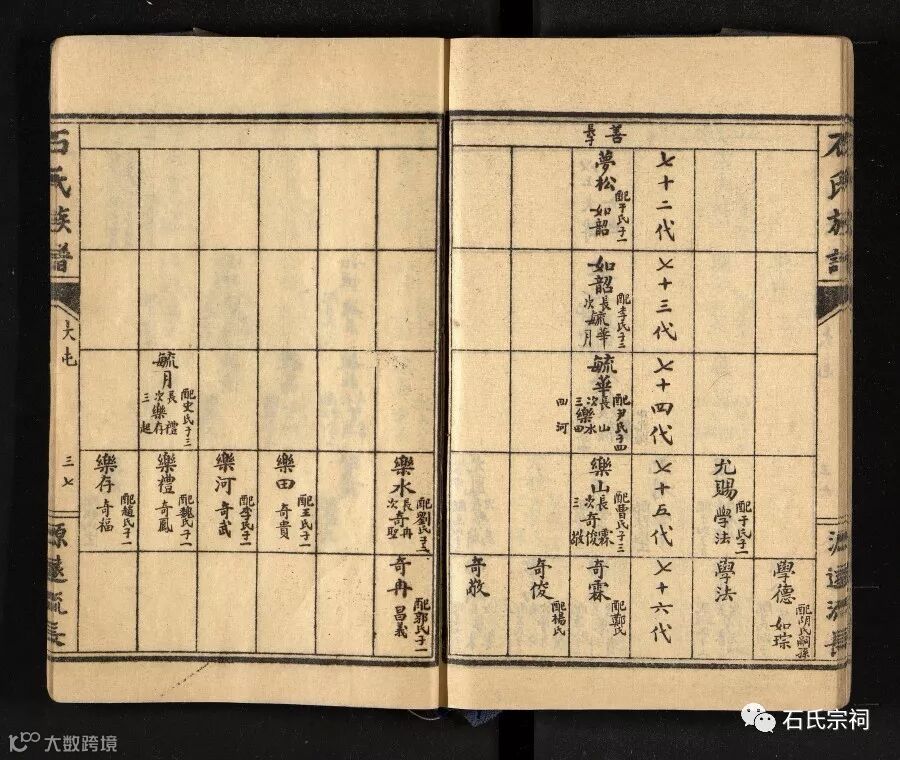 石氏族譜
源遠流長
學德 配胡氏嗣孫
如琮
尤賜 配于氏子一
學法
學法
七十二代
七十三代
七十四代
七十五代
七十六代
善
長子
夢松 配于氏子一
如韶
如韶 配李氏子二
長毓華
次毓月
毓華 配尹氏子四
長樂山
次樂水
三樂田
四河
樂山 配曹氏子三
長奇霖
次奇俊
三敬
奇霖 配鄭氏
奇俊 配楊氏
奇敬
樂水 配劉氏子二
長奇冉
次奇聖
奇冉 配郭氏子一
昌義
樂田 配王氏子一
奇貴
樂河 配李氏子一
奇武
毓月 配史氏子三
長樂禮
次樂存
三起
樂禮 配魏氏子一
奇鳳
樂存 配趙氏子一
奇福
石氏族譜
大屯
三七
源遠流長
大数跨境
石氏宗祠